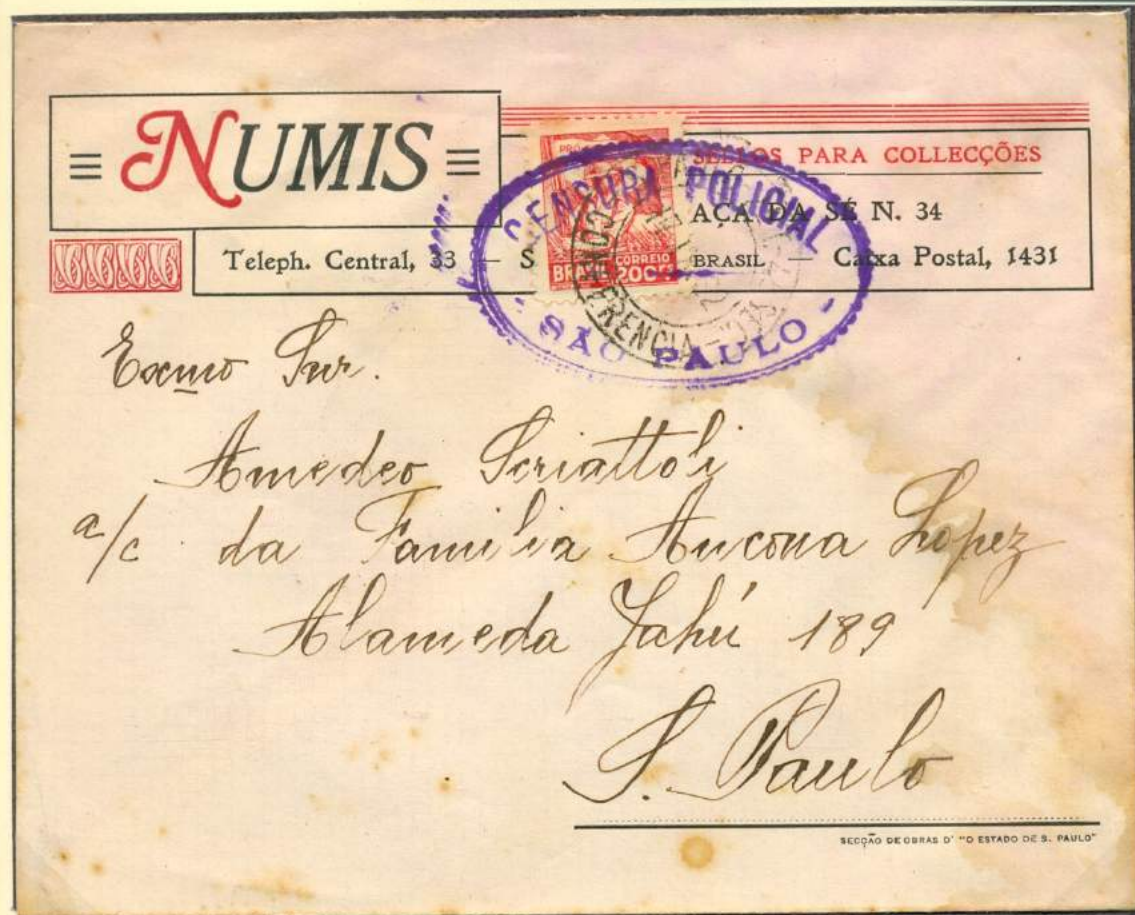 NUMIS
SELLOS PARA COLLECÇÕES
AÇA DA SÉ N. 34
Teleph. Central, 33 — S BRASIL — Caixa Postal, 1431
CENSURA POLICIAL
- SÃO PAULO -
CONFERENCIA
PRO
BRASIL CORREIO
200RS
Exmo Snr.
Amedeo Scriattoli
a/c da Familia Ancona Lopez
Alameda Jahú 189
S. Paulo
SECÇÃO DE OBRAS D' "O ESTADO DE S. PAULO"